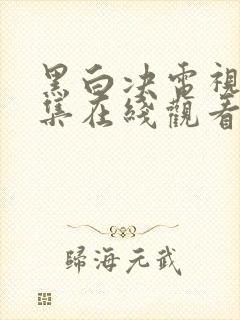 黑白決電視
集在綫觀看
歸海元武